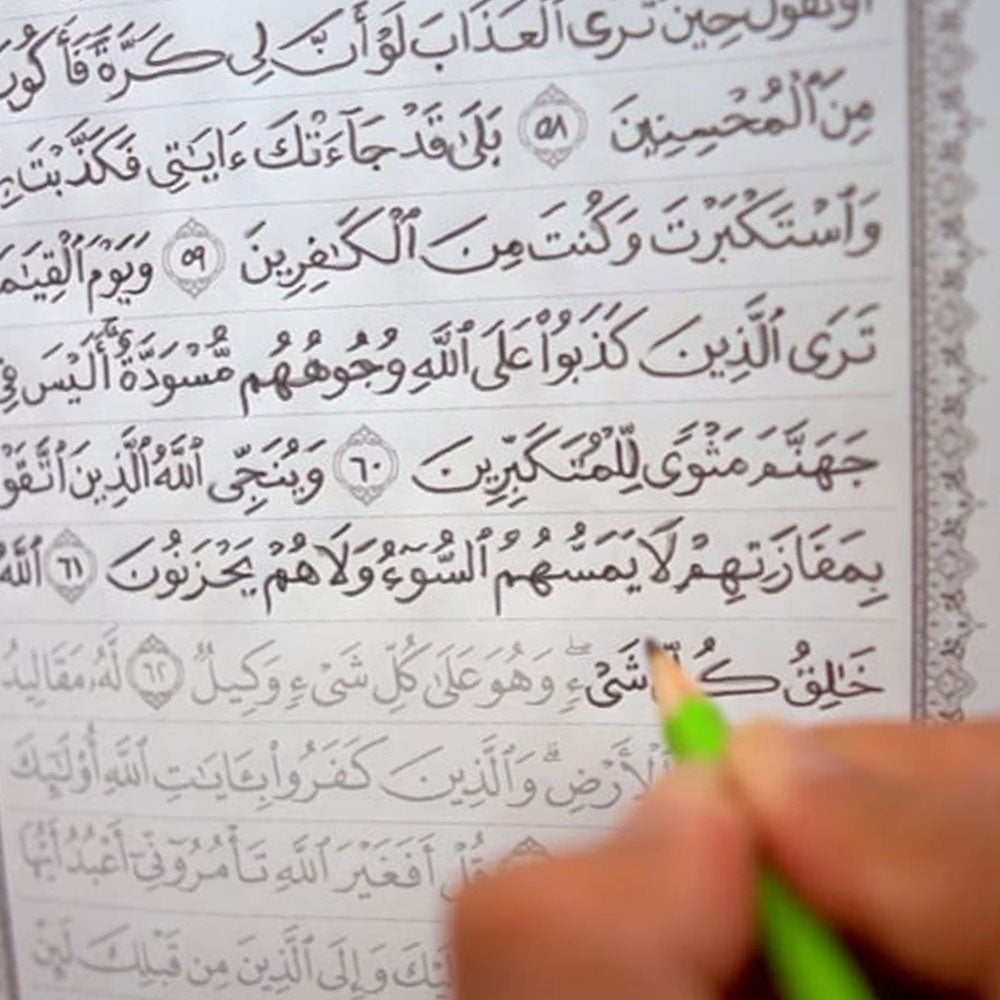 أَوْ تَقُولَ حِينَ تَرَى ٱلْعَذَابَ لَوْ أَنَّ لِى كَرَّةً فَأَكُونَ
مِنَ ٱلْمُحْسِنِينَ ٥٨ بَلَىٰ قَدْ جَآءَتْكَ ءَايَٰتِى فَكَذَّبْتَ بِ
وَٱسْتَكْبَرْتَ وَكُنتَ مِنَ ٱلْكَٰفِرِينَ ٥٩ وَيَوْمَ ٱلْقِيَٰمَ
تَرَى ٱلَّذِينَ كَذَبُوا۟ عَلَى ٱللَّهِ وُجُوهُهُم مُّسْوَدَّةٌ ۚ أَلَيْسَ فِى
جَهَنَّمَ مَثْوًى لِّلْمُتَكَبِّرِينَ ٦٠ وَيُنَجِّى ٱللَّهُ ٱلَّذِينَ ٱتَّقَوْ
بِمَفَازَتِهِمْ لَا يَمَسُّهُمُ ٱلسُّوٓءُ وَلَا هُمْ يَحْزَنُونَ ٦١ ٱللَّهُ
خَٰلِقُ كُلِّ شَىْءٍ ۖ وَهُوَ عَلَىٰ كُلِّ شَىْءٍ وَكِيلٌ ٦٢ لَّهُۥ مَقَالِيدُ
ٱلْأَرْضِ ۗ وَٱلَّذِينَ كَفَرُوا۟ بِـَٔايَٰتِ ٱللَّهِ أُو۟لَٰٓئِكَ
قُلْ أَفَغَيْرَ ٱللَّهِ تَأْمُرُوٓنِّىٓ أَعْبُدُ أَيُّهَا
وَإِلَى ٱلَّذِينَ مِن قَبْلِكَ لَئِنْ